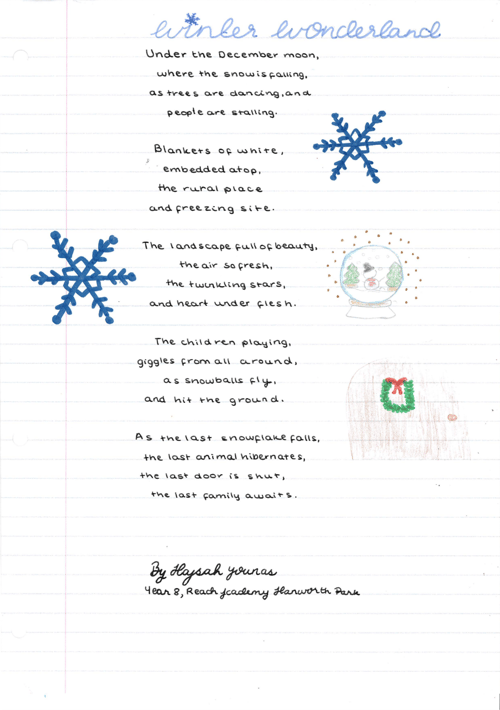 Winter Wonderland
Under the December moon,
where the snow is falling,
as trees are dancing, and
people are stalling.
Blankets of white,
embedded atop,
the rural place
and freezing site.
The landscape full of beauty,
the air so fresh,
the twinkling stars,
and heart under flesh.
The children playing,
giggles from all around,
as snowballs fly,
and hit the ground.
As the last snowflake falls,
the last animal hibernates,
the last door is shut,
the last family awaits.
By Hafsah Younas
Year 8, Reach Academy Hanworth Park